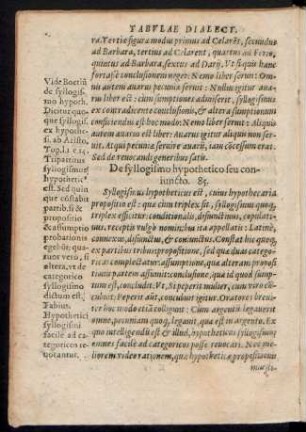 TABVLAE DIALECT.
ra. Tertiæ figuræ modus primus ad Celarēt, secundus
ad Barbara, tertius ad Celarent, quartus ad Ferio,
quintus ad Barbara, sextus ad Darij. Vt si quis hanc
conclusionem neget: Nemo liber seruit: Om
nis autem auarus pecuniæ seruit: Nullus igitur auarus
liber est: cum sumptiones admiserit, syllogismus
ex contradicente conclusionis, & altera sumptionum
conficiendus est hoc modo: Nemo liber seruit: Aliquis
autem auarus liber est: Auarus igitur aliquis non seruit.
Atqui pecuniæ seruire auarū, iam cōcessum erat.
Sed de reuocandi generibus satis.
De syllogismo hypothetico seu coniuncto. 85.
Syllogismus hypotheticus est, cuius hypothetica
propositio est: quæ cùm triplex sit, syllogismus quoque
triplex efficitur: conditionalis, disiunctiuus, copulatus,
recepta vulgò nominibus ita appellati: Latinè,
connexus, disiunctus, & coniunctus. Constat hic quoque
ex partibus tribus, propositione, sed quæ duas categoricas
complectatur, assumptione, quæ alteram propositionis
partem assumit: conclusione, in qua id quod sumptum
est, concludit. Vt, Si peperit mulier, cum viro
cubuit: Peperit aūt, concubuit igitur. Oratores breuiter
hoc modo ista colligunt: Cum argentū legauerit
omne, pecuniam quoq;, legauit, quæ est in argento. Ex
quo intelligendū est & illud, hypotheticos syllogismos
facile ad categoricos posse reuocari. Nec
meliorem video rationem, quā hypotheticæ propositionis
Vide Boetiū
de syllogismo
hypoth.
Dicitur quoque
syllogis.
ex hypothesi.
ab Aristo.
Tripartitus
syllogismꝰ
hypothetic'
est. Sed quinque
partib. si &
propositiōis
& assumptiō
probationis
egebit: quæ si
altera, vt de
categorico
syllogismo
dictum est,
Fabius.
Hypothetici
syllogismi
facile ad categoricos
reuocantur.